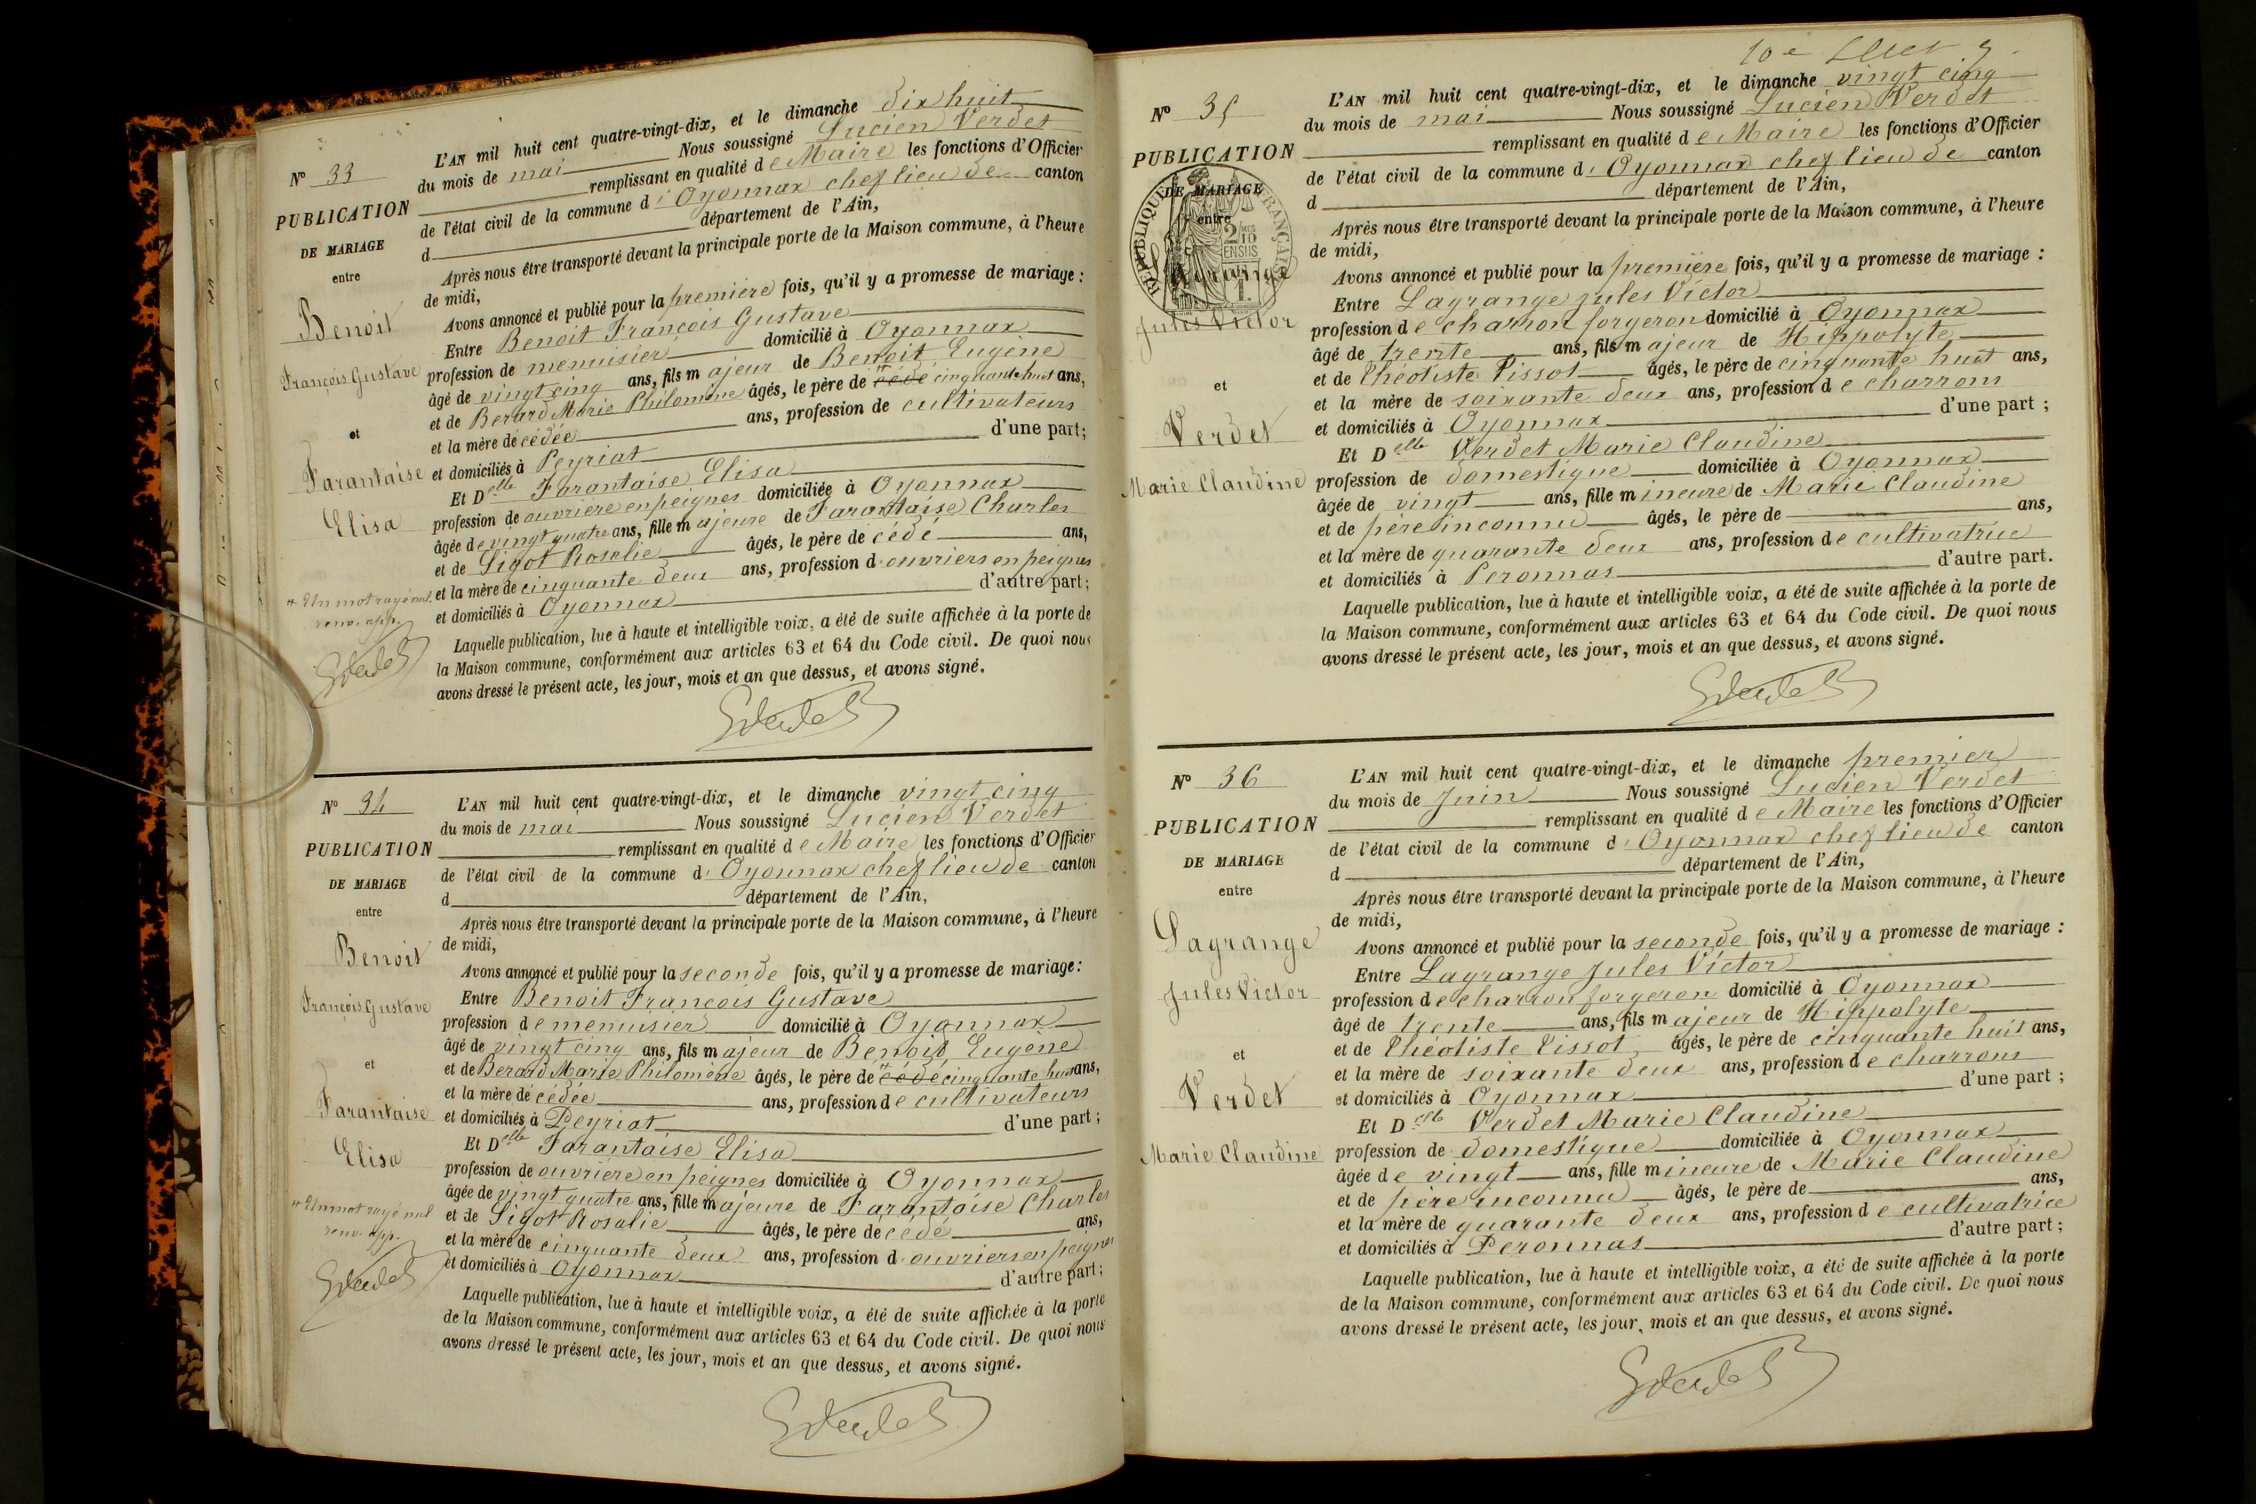 N° 33
PUBLICATION
DE MARIAGE
entre
Benoit
François Gustave
et
Tarantaise
Elisa
Un mot rayé nul
renv. app.
L'AN mil huit cent quatre-vingt-dix, et le dimanche dix huit
du mois de mai Nous soussigné Lucien Verdet
remplissant en qualité de Maire les fonctions d'Officier
de l'état civil de la commune d'Oyonnax chef lieu de canton
d département de l'Ain,
Après nous être transporté devant la principale porte de la Maison commune, à l'heure
de midi,
Avons annoncé et publié pour la première fois, qu'il y a promesse de mariage :
Entre Benoit François Gustave
profession de menuisier domicilié à Oyonnax
âgé de vingt cinq ans, fils majeur de Benoit Eugène
et de Berard Marie Philomène âgés, le père de cédé cinquante huit ans,
et la mère décédée ans, profession de cultivateurs
et domiciliés à Peyriat d'une part;
Et Delle Tarantaise Elisa
profession de ouvrière en peignes domiciliée à Oyonnax
âgée de vingt quatre ans, fille majeure de Tarantaise Charles
et de Sigot Rosalie âgés, le père décédé ans,
et la mère de cinquante deux ans, profession d'ouvriers en peignes
et domiciliés à Oyonnax d'autre part;
Laquelle publication, lue à haute et intelligible voix, a été de suite affichée à la porte de
la Maison commune, conformément aux articles 63 et 64 du Code civil. De quoi nous
avons dressé le présent acte, les jour, mois et an que dessus, et avons signé.
N° 34
PUBLICATION
DE MARIAGE
entre
Benoit
François Gustave
et
Tarantaise
Elisa
Un mot rayé nul
renv. app.
L'AN mil huit cent quatre-vingt-dix, et le dimanche vingt cinq
du mois de mai Nous soussigné Lucien Verdet
remplissant en qualité de Maire les fonctions d'Officier
de l'état civil de la commune d'Oyonnax chef lieu de canton
d département de l'Ain,
Après nous être transporté devant la principale porte de la Maison commune, à l'heure
de midi,
Avons annoncé et publié pour la seconde fois, qu'il y a promesse de mariage:
Entre Benoit François Gustave
profession de menuisier domicilié à Oyonnax
âgé de vingt cinq ans, fils majeur de Benoit Eugène
et de Berard Marie Philomène âgés, le père de cédé cinquante huit ans,
et la mère décédée ans, profession de cultivateurs
et domiciliés à Peyriat d'une part ;
Et Delle Tarantaise Elisa
profession de ouvrière en peignes domiciliée à Oyonnax
âgée de vingt quatre ans, fille majeure de Tarantaise Charles
et de Sigot Rosalie âgés, le père décédé ans,
et la mère de cinquante deux ans, profession d'ouvriers en peignes
et domiciliés à Oyonnax d'autre part;
Laquelle publication, lue à haute et intelligible voix, a été de suite affichée à la porte
de la Maison commune, conformément aux articles 63 et 64 du Code civil. De quoi nous
avons dressé le présent acte, les jour, mois et an que dessus, et avons signé.
10e
N° 35
PUBLICATION
DE MARIAGE
entre
RÉPUBLIQUE FRANÇAISE
2/10 EN SUS
Lagrange
Jules Victor
et
Verdet
Marie Claudine
L'AN mil huit cent quatre-vingt-dix, et le dimanche vingt cinq
du mois de mai Nous soussigné Lucien Verdet
remplissant en qualité de Maire les fonctions d'Officier
de l'état civil de la commune d'Oyonnax chef lieu de canton
d département de l'Ain,
Après nous être transporté devant la principale porte de la Maison commune, à l'heure
de midi,
Avons annoncé et publié pour la première fois, qu'il y a promesse de mariage :
Entre Lagrange Jules Victor
profession de charron forgeron domicilié à Oyonnax
âgé de trente ans, fils majeur de Hippolyte
et de Théotiste Pissot âgés, le père de cinquante huit ans,
et la mère de soixante deux ans, profession de charrons
et domiciliés à Oyonnax d'une part ;
Et Delle Verdet Marie Claudine
profession de domestique domiciliée à Oyonnax
âgée de vingt ans, fille mineure de Marie Claudine
et de père inconnu âgés, le père de ans,
et la mère de quarante deux ans, profession de cultivatrice
et domiciliés à Peronnas d'autre part.
Laquelle publication, lue à haute et intelligible voix, a été de suite affichée à la porte de
la Maison commune, conformément aux articles 63 et 64 du Code civil. De quoi nous
avons dressé le présent acte, les jour, mois et an que dessus, et avons signé.
N° 36
PUBLICATION
DE MARIAGE
entre
Lagrange
Jules Victor
et
Verdet
Marie Claudine
L'AN mil huit cent quatre-vingt-dix, et le dimanche premier
du mois de Juin Nous soussigné Lucien Verdet
remplissant en qualité de Maire les fonctions d'Officier
de l'état civil de la commune d'Oyonnax chef lieu de canton
d département de l'Ain,
Après nous être transporté devant la principale porte de la Maison commune, à l'heure
de midi,
Avons annoncé et publié pour la seconde fois, qu'il y a promesse de mariage :
Entre Lagrange Jules Victor
profession de charron forgeron domicilié à Oyonnax
âgé de trente ans, fils majeur de Hippolyte
et de Théotiste Pissot âgés, le père de cinquante huit ans,
et la mère de soixante deux ans, profession de charrons
et domiciliés à Oyonnax d'une part ;
Et Delle Verdet Marie Claudine
profession de domestique domiciliée à Oyonnax
âgée de vingt ans, fille mineure de Marie Claudine
et de père inconnu âgés, le père de ans,
et la mère de quarante deux ans, profession de cultivatrice
et domiciliés à Peronnas d'autre part ;
Laquelle publication, lue à haute et intelligible voix, a été de suite affichée à la porte
de la Maison commune, conformément aux articles 63 et 64 du Code civil. De quoi nous
avons dressé le présent acte, les jour, mois et an que dessus, et avons signé.